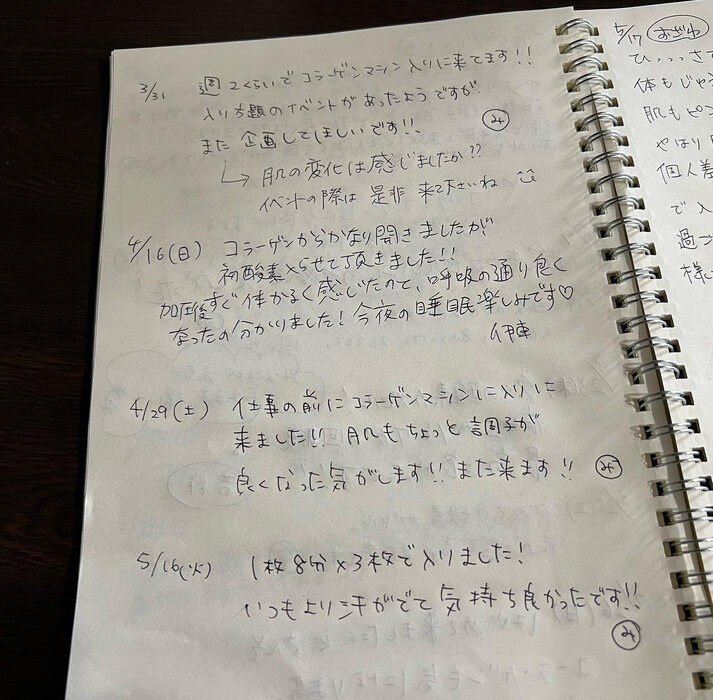 3/31 週2くらいでコラーゲンマシン入りに来てます!!
入り方題のイベントがあったようですが
また企画してほしいです!!
↳ 肌の変化は感じましたか??
イベントの際は是非来て下さいね
4/16(日) コラーゲンからかなり開きましたが
初酸素入らせて頂きました!!
加圧後すぐ体かるく感じたので、呼吸の通り良く
なったの分かりました!今夜の睡眠楽しみです♡
伊東
4/29(土) 仕事の前にコラーゲンマシンに入りに
来ました!! 肌もちょっと調子が
良くなった気がします!! また来ます!!
5/16(火) 1枚8分×3枚で入りました!
いつもより汗がでて気持ち良かったです!!
5/17
体も
肌もピン
やはり
個人差
で入
過ご
様